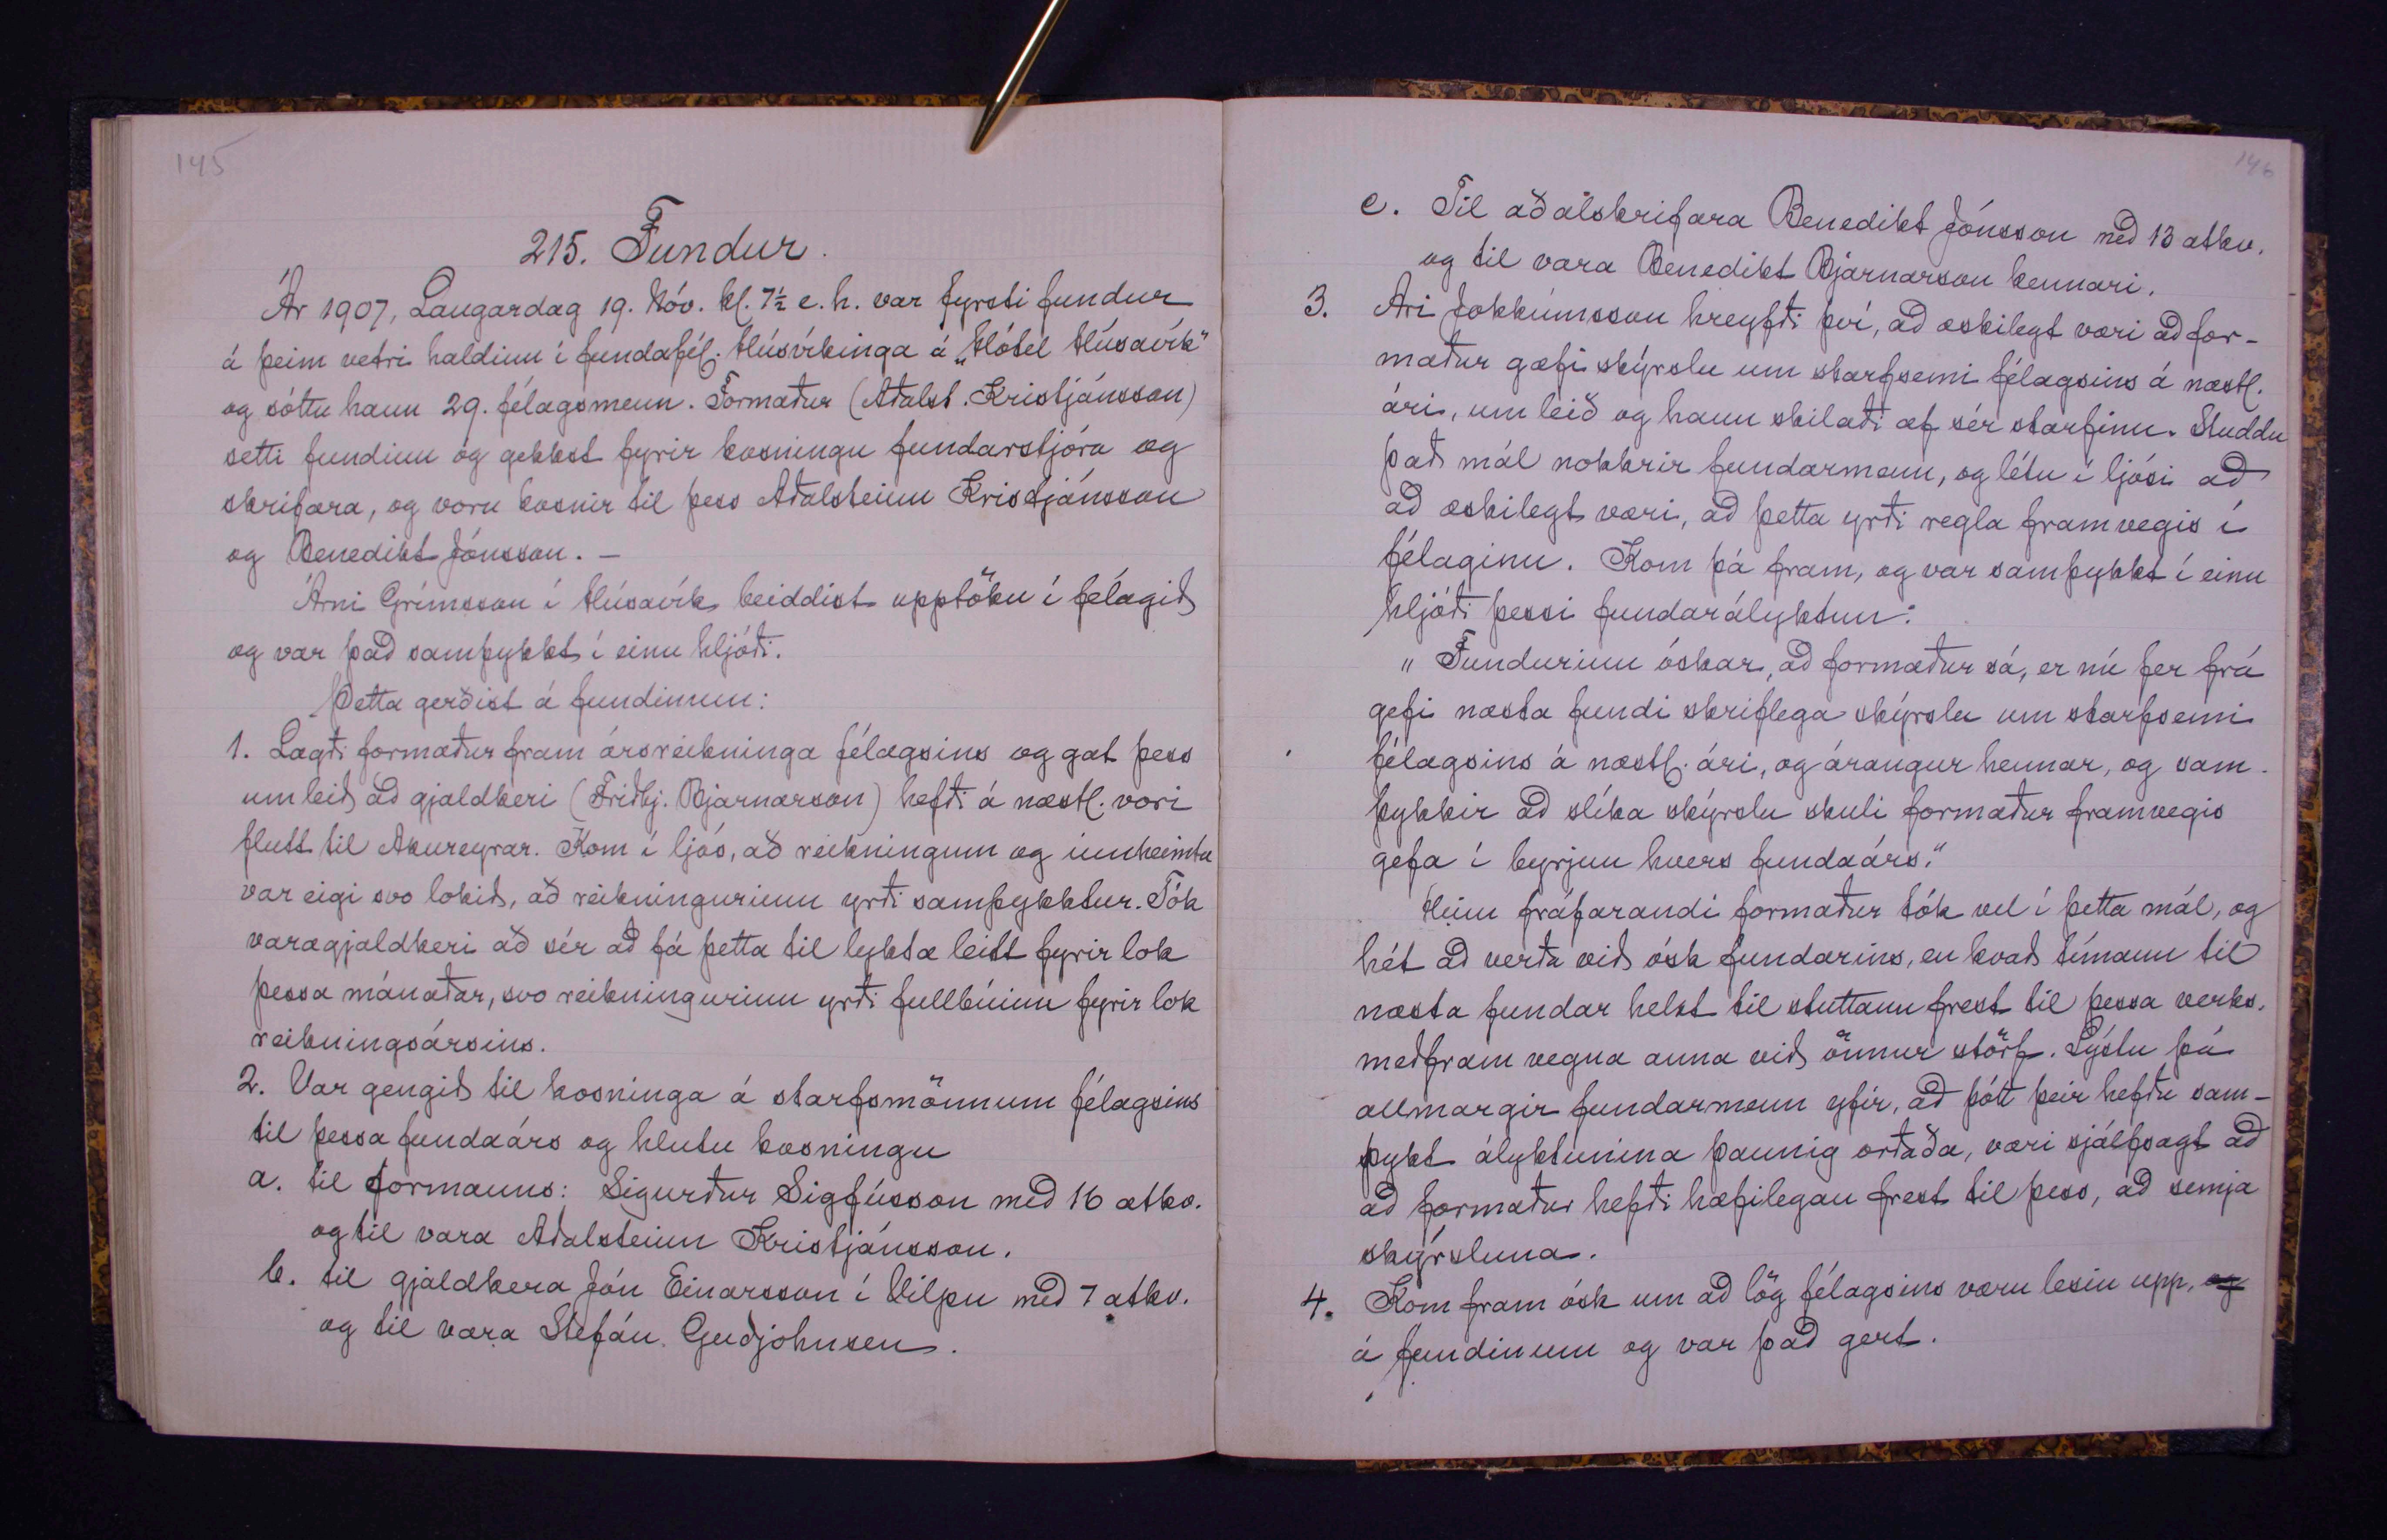 145
215. Fundur.
Ár 1907, Laugardag 19. Nóv. kl. 7½ e.h. var fyrsti fundur
á þeim vetri haldinn í fundafél. Húsvíkinga á „Hótel Húsavík"
og sóttu hann 29. félagsmenn. Formaður (Aðalst. Kristjánsson)
setti fundinn og gekkst fyrir kosningu fundarstjóra og
skrifara, og voru kosnir til þess Aðalsteinn Kristjánsson
og Benedikt Jónsson. –
Árni Grímsson í Húsavík beiddist upptöku í félagið
og var það samþykkt í einu hljóði.
Þetta gerðist á fundinum:
1. Lagði formaður fram ársreikninga félagsins og gat þess
um leið að gjaldkeri (Friðbj. Bjarnarson) hefði á næstl. vori
flutt til Akureyrar. Kom í ljós, að reikningum og innheimtu
var eigi svo lokið, að reikningurinn yrði samþykktur. Tók
varagjaldkeri að sér að fá þetta til lykta leitt fyrir lok
þessa mánaðar, svo reikningurinn yrði fullbúinn fyrir lok
reikningsársins.
2. Var gengið til kosninga á starfsmönnum félagsins
til þessa fundaárs og hlutu kosningu
a. til formanns: Sigurður Sigfússon með 16 atkv.
og til vara Aðalsteinn Kristjánsson.
b. til gjaldkera Jón Einarsson í Vilpu með 7 atkv.
og til vara Stefán Guðjohnsen.
146
c. Til aðalskrifara Benedikt Jónsson með 13 atkv.
og til vara Benedikt Bjarnarson kennari.
3. Ari Jokkúmsson hreyfði því, að æskilegt væri að for-
maður gæfi skýrslu um starfsemi félagsins á næstl.
ári, um leið og hann skilaði af sér starfinu. Studdu
það mál nokkrir fundarmenn, og létu í ljósi að
að æskilegt væri, að þetta yrði regla framvegis í
félaginu. Kom þá fram, og var samþykkt í einu
hljóði þessi fundarályktun:
„Fundurinn óskar, að formaður sá, er nú fer frá
gefi næsta fundi skriflega skýrslu um starfsemi
félagsins á næstl. ári, og árangur hennar, og sam-
þykkir að slíka skýrslu skuli formaður framvegis
gefa í byrjun hvers fundaárs."
Hinn fráfarandi formaður tók vel í þetta mál, og
hét að verða við ósk fundarins, en kvað tímann til
næsta fundar helst til stuttann frest til þessa verks,
meðfram vegna anna við önnur störf. Lýstu þá
allmargir fundarmenn yfir, að þótt þeir hefðu sam-
þykt ályktunina þannig orðaða, væri sjálfsagt að
að formaður hefði hæfilegan frest til þess, að semja
skýrsluna.
4. Kom fram ósk um að lög félagsins væru lesin upp, og
á fundinum og var það gert.